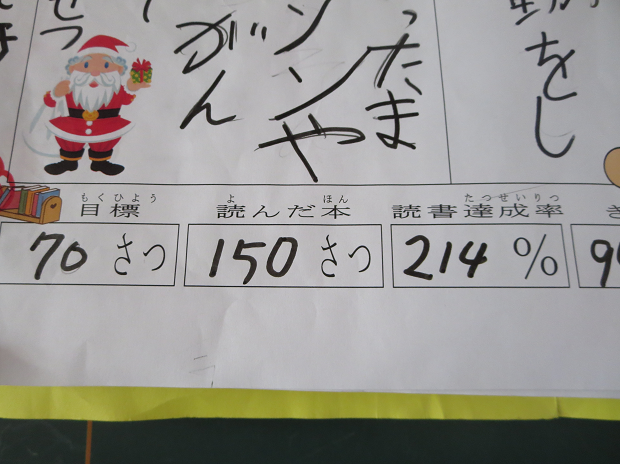 動をし
ったま
ンや
がん
もくひょう
目標
よ ほん
読んだ本
たつせいりつ
読書達成率
70 さつ
150 さつ
214 %